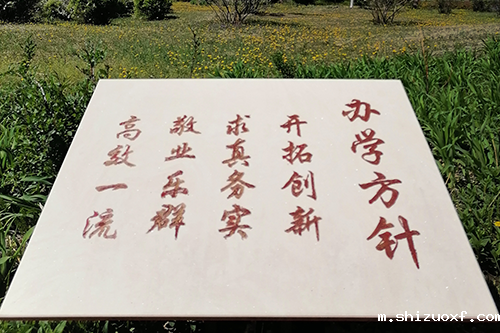 办学方针
开拓创新
求真务实
敬业乐群
高效一流
m.shizuoxf.com